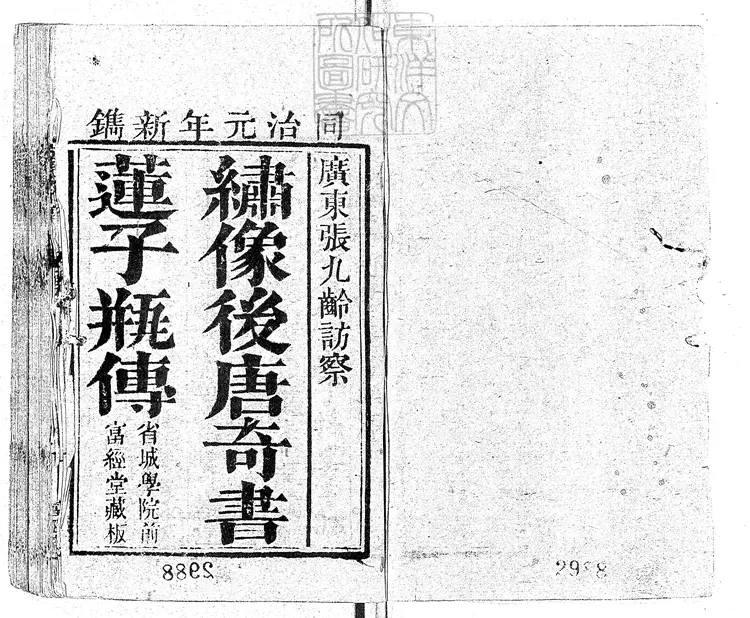 同治元年新鐫
廣東張九齡訪察
繡像後唐奇書
蓮子瓶傳
省城學院前
富經堂藏板
東洋文
化研究
所圖書
2988